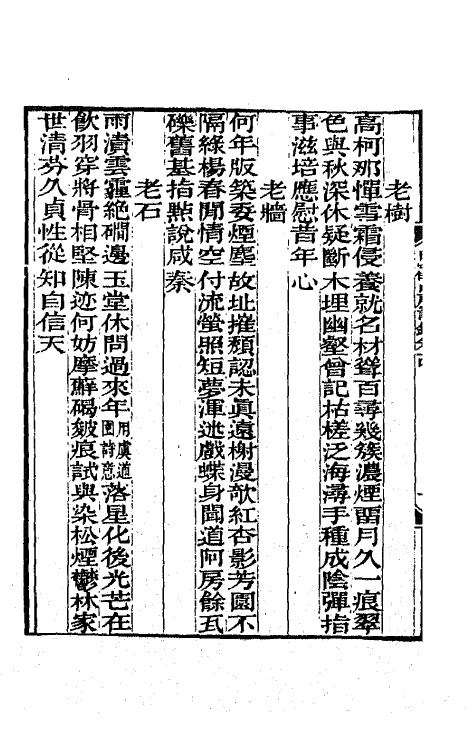 老樹
高柯那憚雪霜侵養就名材聳百尋幾簇濃煙畱月久一痕翠
色與秋深休疑斷木埋幽壑曾記枯槎泛海潯手種成陰彈指
事滋培應慰昔年心
老牆
何年版築委煙塵故址摧頹認未眞遠榭漫欹紅杏影芳園不
隔綠楊春閒情空付流螢照短夢渾迷戲蝶身聞道阿房餘瓦
礫舊基指點說咸秦
老石
雨漬雲靇絕磵邊玉堂休問過來年用虞道園詩意落星化後光芒在
飮羽穿將骨相堅陳迹何妨摩蘚碣皴痕試與染松煙鬱林家
世清芬久貞性從知自信天